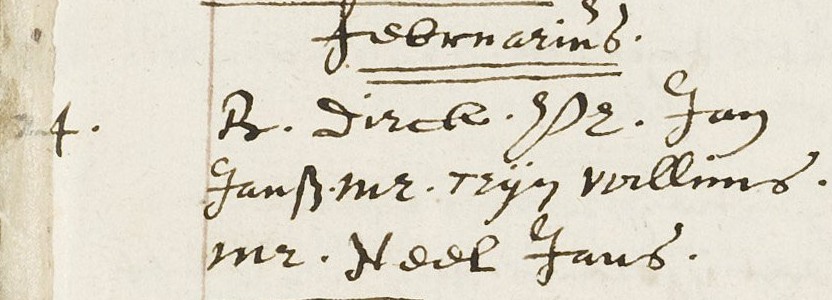 Februarius.
4. R. Dirck. Pr. Jan
Janß. mr. Trijn Willims.
mr. Neel Jans.